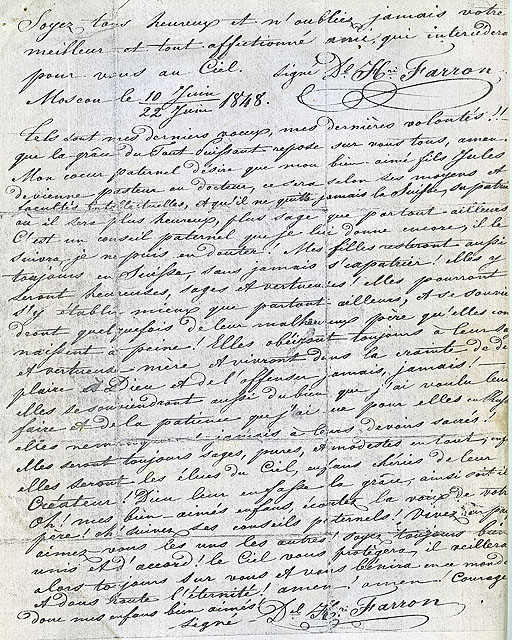 Soyez tous heureux et n'oubliez jamais votre
meilleur et tout affectionné ami, qui intercédera
pour vous au Ciel. Signé Dr. Hri Farron
Moscou le 10 Juin / 22 Juin 1848.
Tels sont mes derniers voeux, mes dernières volontés!!
que la grâce du Tout Puissant repose sur vous tous, amen.
Mon coeur paternel désire que mon bien aimé fils Jules
devienne pasteur ou docteur, ce sera selon ses moyens et
facultés intellectuelles, et qu'il ne quitte jamais la Suisse, sa patrie
où il sera plus heureux, plus sage que partout ailleurs
C'est un conseil paternel que je lui donne encore, il le
suivra, je ne puis en douter! Mes filles resteront aussi
toujours en Suisse, sans jamais s'expatrier! elles y
seront heureuses, sages et vertueuses! elles pourront
s'y établir mieux que partout ailleurs, et se souvien
dront quelquefois de leur malheureux père qu'elles con
naissent à peine! Elles obéiront toujours à leur
et vertueuse mère et vivront dans la crainte de dé
plaire à Dieu et de l'offenser jamais, jamais!
elles se souviendront aussi du bien que j'ai voulu leur
faire et de la patience que j'ai eue pour elles en
elles ne jamais à leurs devoirs sacrés!
elles seront toujours sages, pures, et modestes en tout,
elles seront les élues du Ciel, enfans chéries de leur
Créateur! Dieu leur en fasse la grâce, ainsi soit il
Oh! mes bien aimés enfans, écoutez la voix de votre
père! oh! suivez ses conseils paternels! Vivez en paix
aimez vous les uns les autres! soyez toujours bien
unis et d'accord! le Ciel vous protégera, il veillera
alors toujours sur vous et vous bénira en ce monde
et dans toute l'éternité! amen! amen! Courage
donc mes enfans bien aimés
Signé Dr. Hri Farron